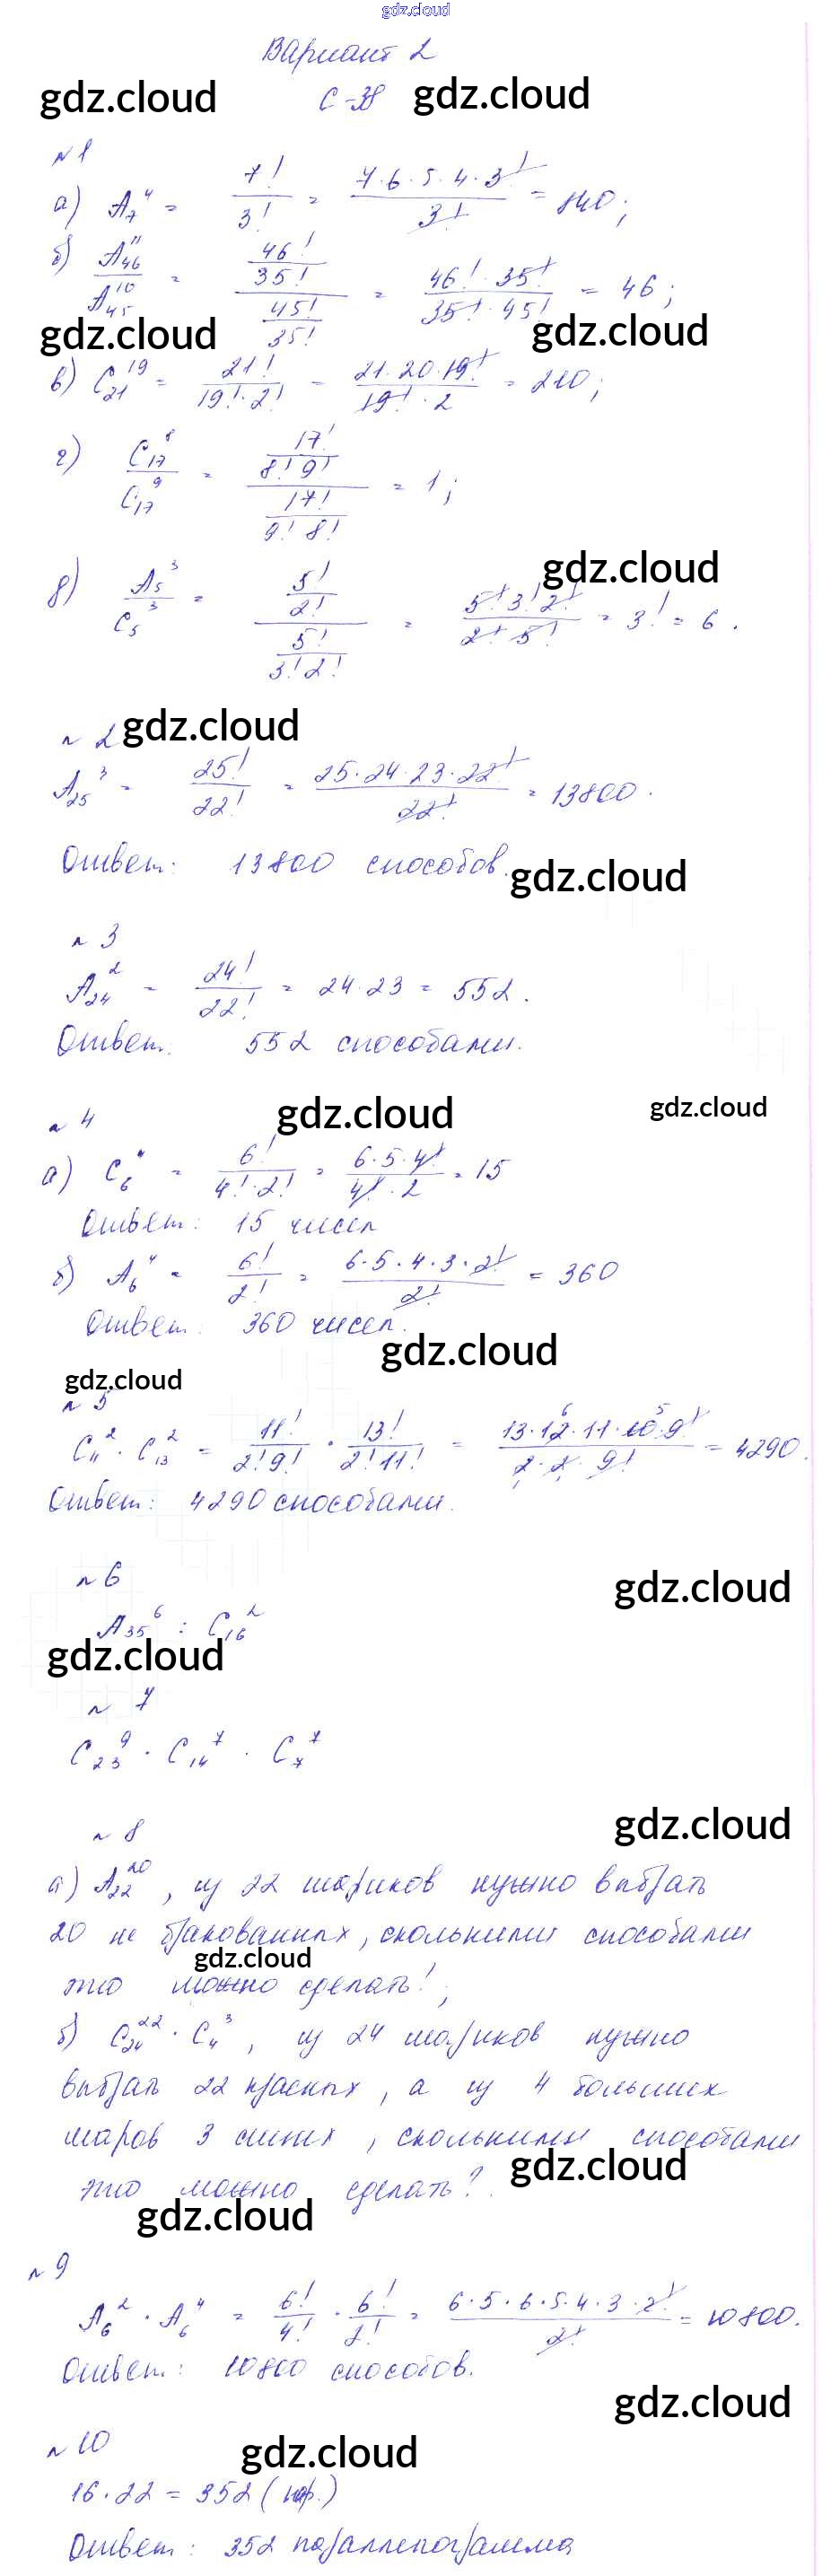 gdz.cloud
Вариант 2
gdz.cloud С-38 gdz.cloud
№ 1
а) A₇⁴ = 7!/3! = 7·6·5·4·3!/3! = 840;
б) A₄₆¹¹/A₄₅¹⁰ = (46!/35!)/(45!/35!) = 46!·35!/35!·45! = 46;
gdz.cloud gdz.cloud
в) C₂₁¹⁹ = 21!/19!·2! = 21·20·19!/19!·2 = 210;
г) C₁₇⁸/C₁₇⁹ = (17!/8!9!)/(17!/9!8!) = 1;
gdz.cloud
д) A₅³/C₅³ = (5!/2!)/(5!/3!2!) = 5!3!2!/2!5! = 3! = 6.
№ 2 gdz.cloud
A₂₅³ = 25!/22! = 25·24·23·22!/22! = 13800.
Ответ: 13800 способов. gdz.cloud
№ 3
A₂₄² = 24!/22! = 24·23 = 552.
Ответ: 552 способами.
№ 4 gdz.cloud gdz.cloud
а) C₆⁴ = 6!/4!·2! = 6·5·4!/4!·2 = 15
Ответ: 15 чисел
б) A₆⁴ = 6!/2! = 6·5·4·3·2!/2! = 360
Ответ: 360 чисел.
gdz.cloud
gdz.cloud
№ 5
C₁₁² · C₁₃² = 11!/2!9! · 13!/2!11! = 13·12·11·10·9!/2·2·9! = 4290.
Ответ: 4290 способами.
№ 6 gdz.cloud
A₃₅⁶ : C₁₆²
gdz.cloud
№ 7
C₂₃⁹ · C₁₄⁷ · C₇⁷
№ 8 gdz.cloud
а) A₂₂²⁰, из 22 шариков нужно выбрать
20 не бракованных, сколькими способами
gdz.cloud
это можно сделать!;
б) C₂₄²² · C₄³, из 24 шариков нужно
выбрать 22 красных, а из 4 больших
шаров 3 синих, сколькими способами
gdz.cloud
это можно сделать?.
gdz.cloud
№ 9
A₆² · A₆⁴ = 6!/4! · 6!/2! = 6·5·6·5·4·3·2!/2! = 10800.
Ответ: 10800 способов.
gdz.cloud
№ 10 gdz.cloud
16·22 = 352 (пар.)
Ответ: 352 параллелограмма